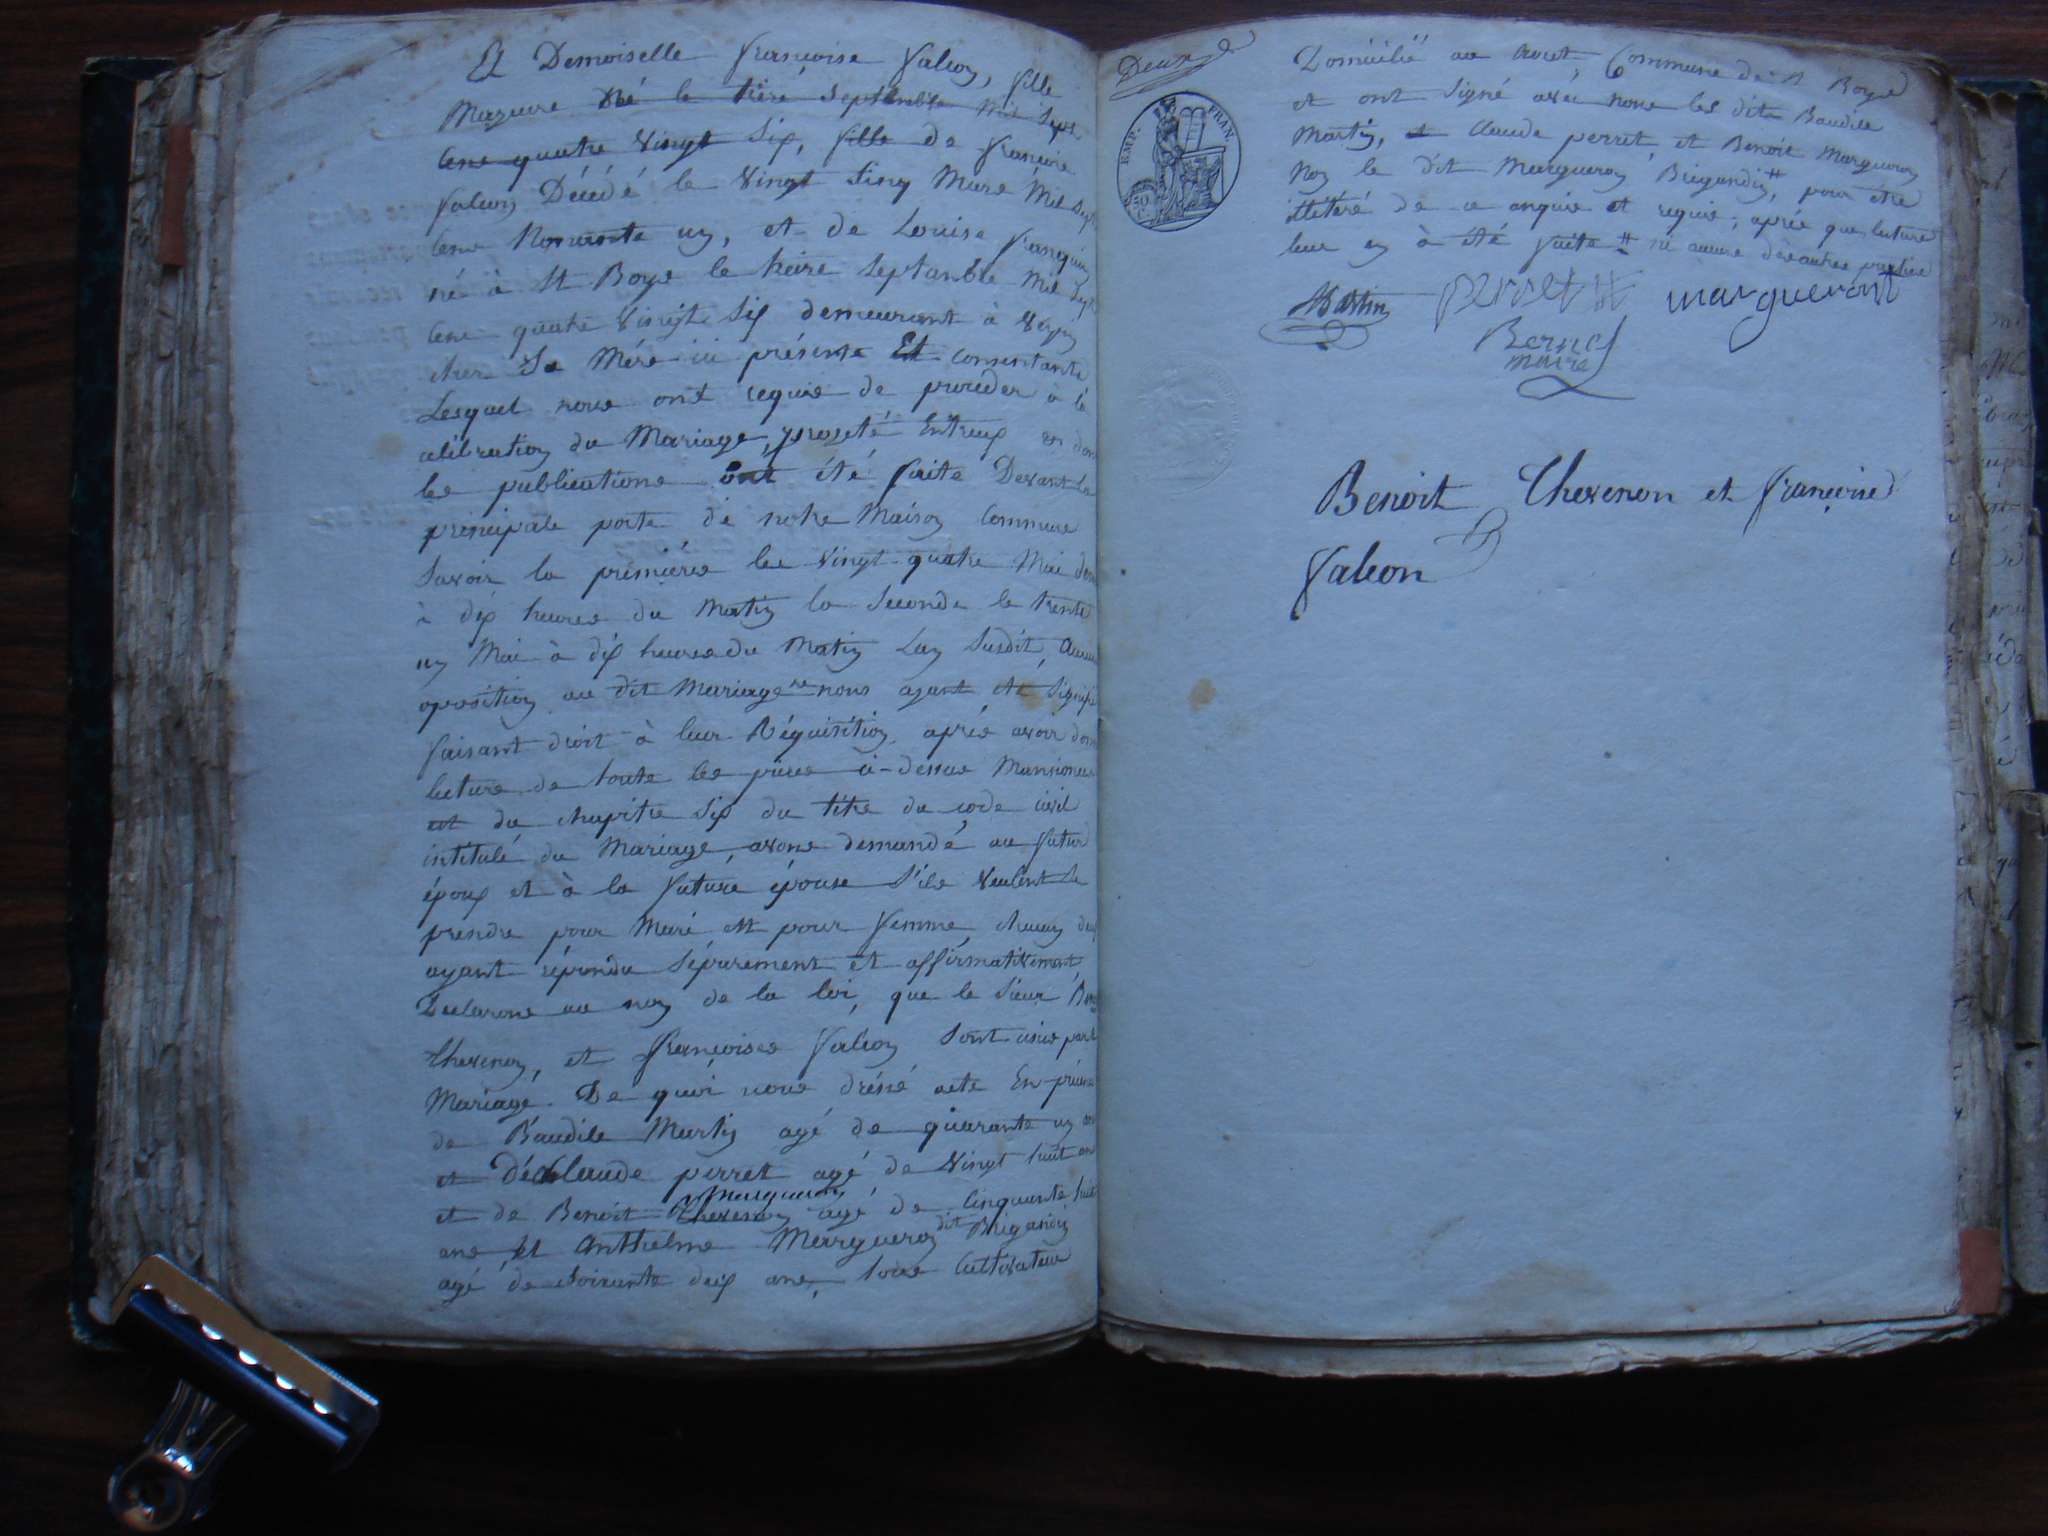 Et Demoiselle françoise falcoz, fille
Majeure né le treize septembre Mil Sept
Cent quatre vingt Six, fille de françois
falcoz Décédé le vingt Sinq Mars Mil Sept
Cent Nonante un, et de Louise franquin
né à St Boys le treize Septanbre Mil Sept
Cent quatre vingt Six demeurant à
chez Sa Mére ici présente Et consentante
Lesquel nous ont requis de procéder à la
célébration du Mariage, projeté Entreux et dont
les publications ont été faite Devant la
principale porte de notre Maison Commune
Savoir la premiére le vingt quatre Mai
à dix heures du Matin la Seconde le trente
un Mai à dix heures du Matin Lan Susdit, Aucune
oposition au dit Mariage ne nous ayant été Signifié
faisant droit à leur Réquisition, aprés avoir donné
lecture de toute les piéces ci-dessus Mansionné
et du chapitre Six du titre du code civil
intitulé du Mariage, avons demandé au futur
époux et à la future épouse S'ils veulent Se
prendre pour Mari et pour femme, chacun deux
ayant répondu Séparement et affirmativement
Declarons au nom de la loi, que le Sieur Benoit
thevenon, et françoises falcoz Sont unis par le
Mariage. De quoi nous dréssé acte En présence
de Baudile Martin agé de quarante un ans
et de Claude perret agé de vingt huit ans
et de Benoit Thevenon Margueron agé de Cinquante huit
ans et Anthelme Margueron dit Brigandin
agé de Soixante deux ans, tous Cultivateur
Deux
EMP. FRAN
50 C.
Domicilié au Commune de St Boys
et ont Signé avec nous les dits Baudile
Martin, et Claude perret, et Benoit Marguron
Non le dit Margueron Brigandin, # pour étre
illétéré de ce anquis et requis, aprés que lecture
leur en à été faite # ni aucune des autres parties
Martin perret # margueront
Bernel
maire
Benoit Thevenon et françoise
falcon